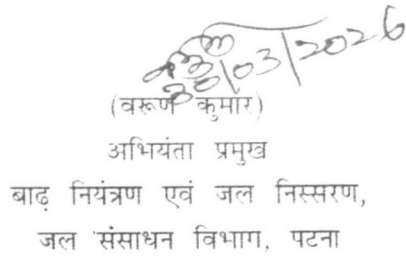 30/03/2026
(वरूण कुमार)
अभियंता प्रमुख
बाढ़ नियंत्रण एवं जल निस्सरण,
जल संसाधन विभाग, पटना